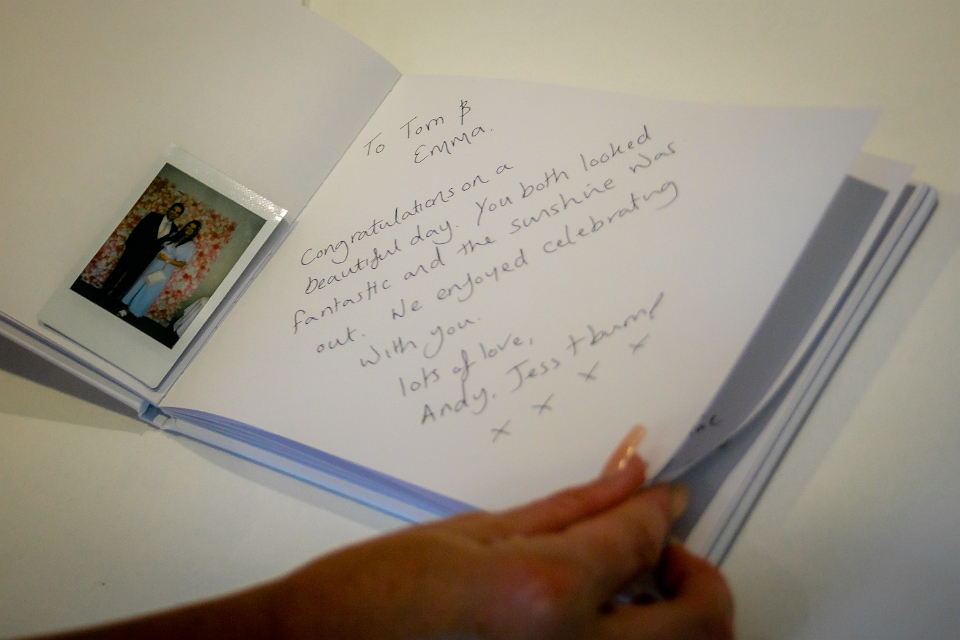 To Tom &
Emma.
Congratulations on a
beautiful day. You both looked
fantastic and the sunshine was
out. We enjoyed celebrating
with you.
lots of love,
Andy, Jess + bump
x x x x